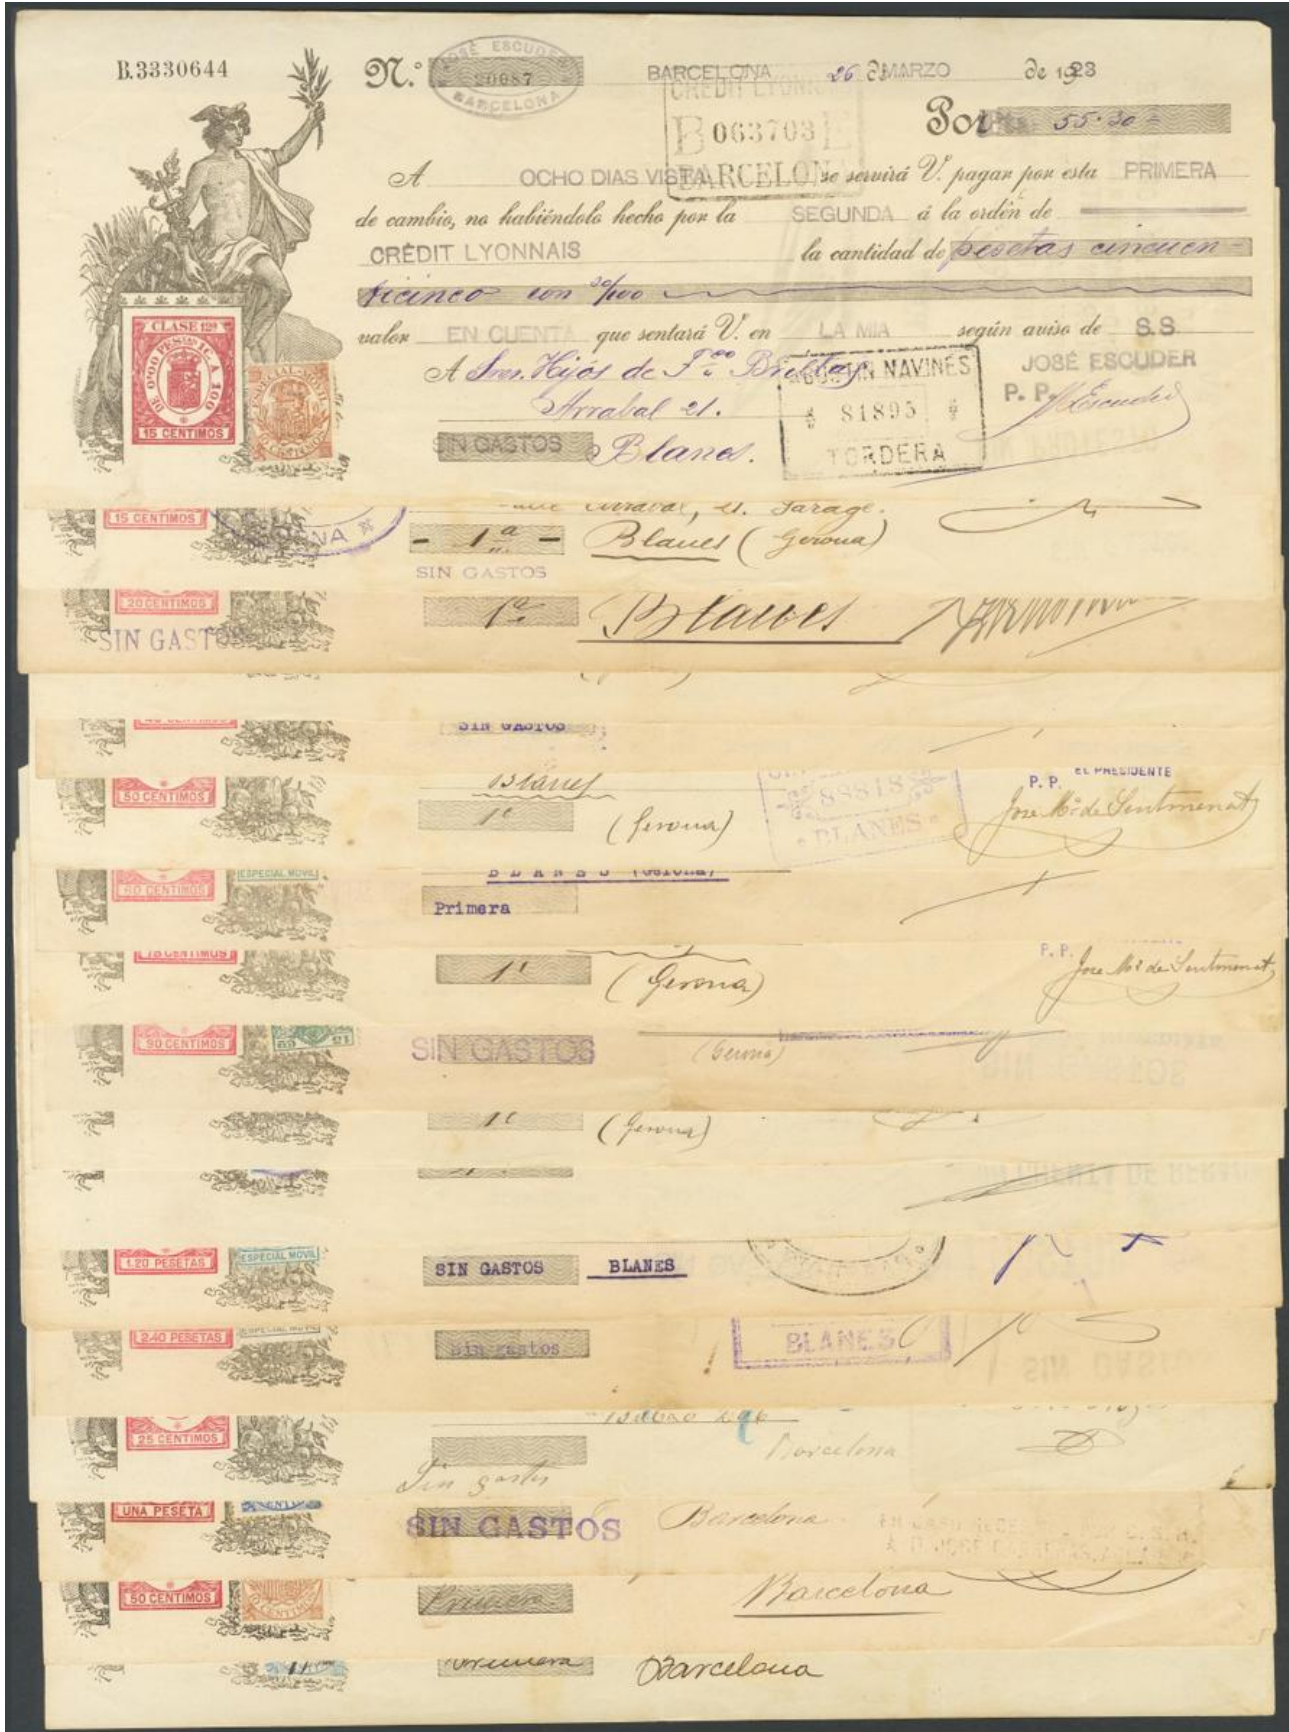 B.3330644
N.º 20087 BARCELONA 26 de MARZO de 1923
JOSÉ ESCUDER
BARCELONA
CREDIT LYONNAIS
B 063703 E
BARCELONA
Por 55·30
A OCHO DIAS VISTA se servirá V. pagar por esta PRIMERA
de cambio, no habiéndolo hecho por la SEGUNDA á la orden de
CRÉDIT LYONNAIS la cantidad de pesetas cincuen-
ticinco con 30/100
valor EN CUENTA que sentará V. en LA MIA según aviso de S.S.
CLASE 12ª
DE 0'01 A 100
15 CENTIMOS
ESPECIAL MOVIL
A Sres. Hijos de Fco
Arrabal 21.
SIN GASTOS Blanes.
AGUSTIN NAVINÉS
81895
TORDERA
JOSÉ ESCUDER
P. P. Escuder
15 CENTIMOS
Arrabal, 21. Garage.
- 1ª - Blanes (Gerona)
SIN GASTOS
20 CENTIMOS 1ª Blanes
SIN GASTOS
SIN GASTOS
Blanes
50 CENTIMOS 1ª (Gerona)
88818
BLANES
EL PRESIDENTE
P. P.
José Mª de Sentmenat
60 CENTIMOS ESPECIAL MOVIL BLANES (Gerona)
Primera
75 CENTIMOS 1ª (Gerona)
P. P.
José Mª de Sentmenat
90 CENTIMOS SIN GASTOS (Gerona)
1ª (Gerona)
1.20 PESETAS ESPECIAL MOVIL SIN GASTOS BLANES
2.40 PESETAS ESPECIAL MOVIL Sin gastos BLANES
25 CENTIMOS Barcelona
Sin gastos
UNA PESETA SIN GASTOS Barcelona
50 CENTIMOS Primera Barcelona
Primera Barcelona